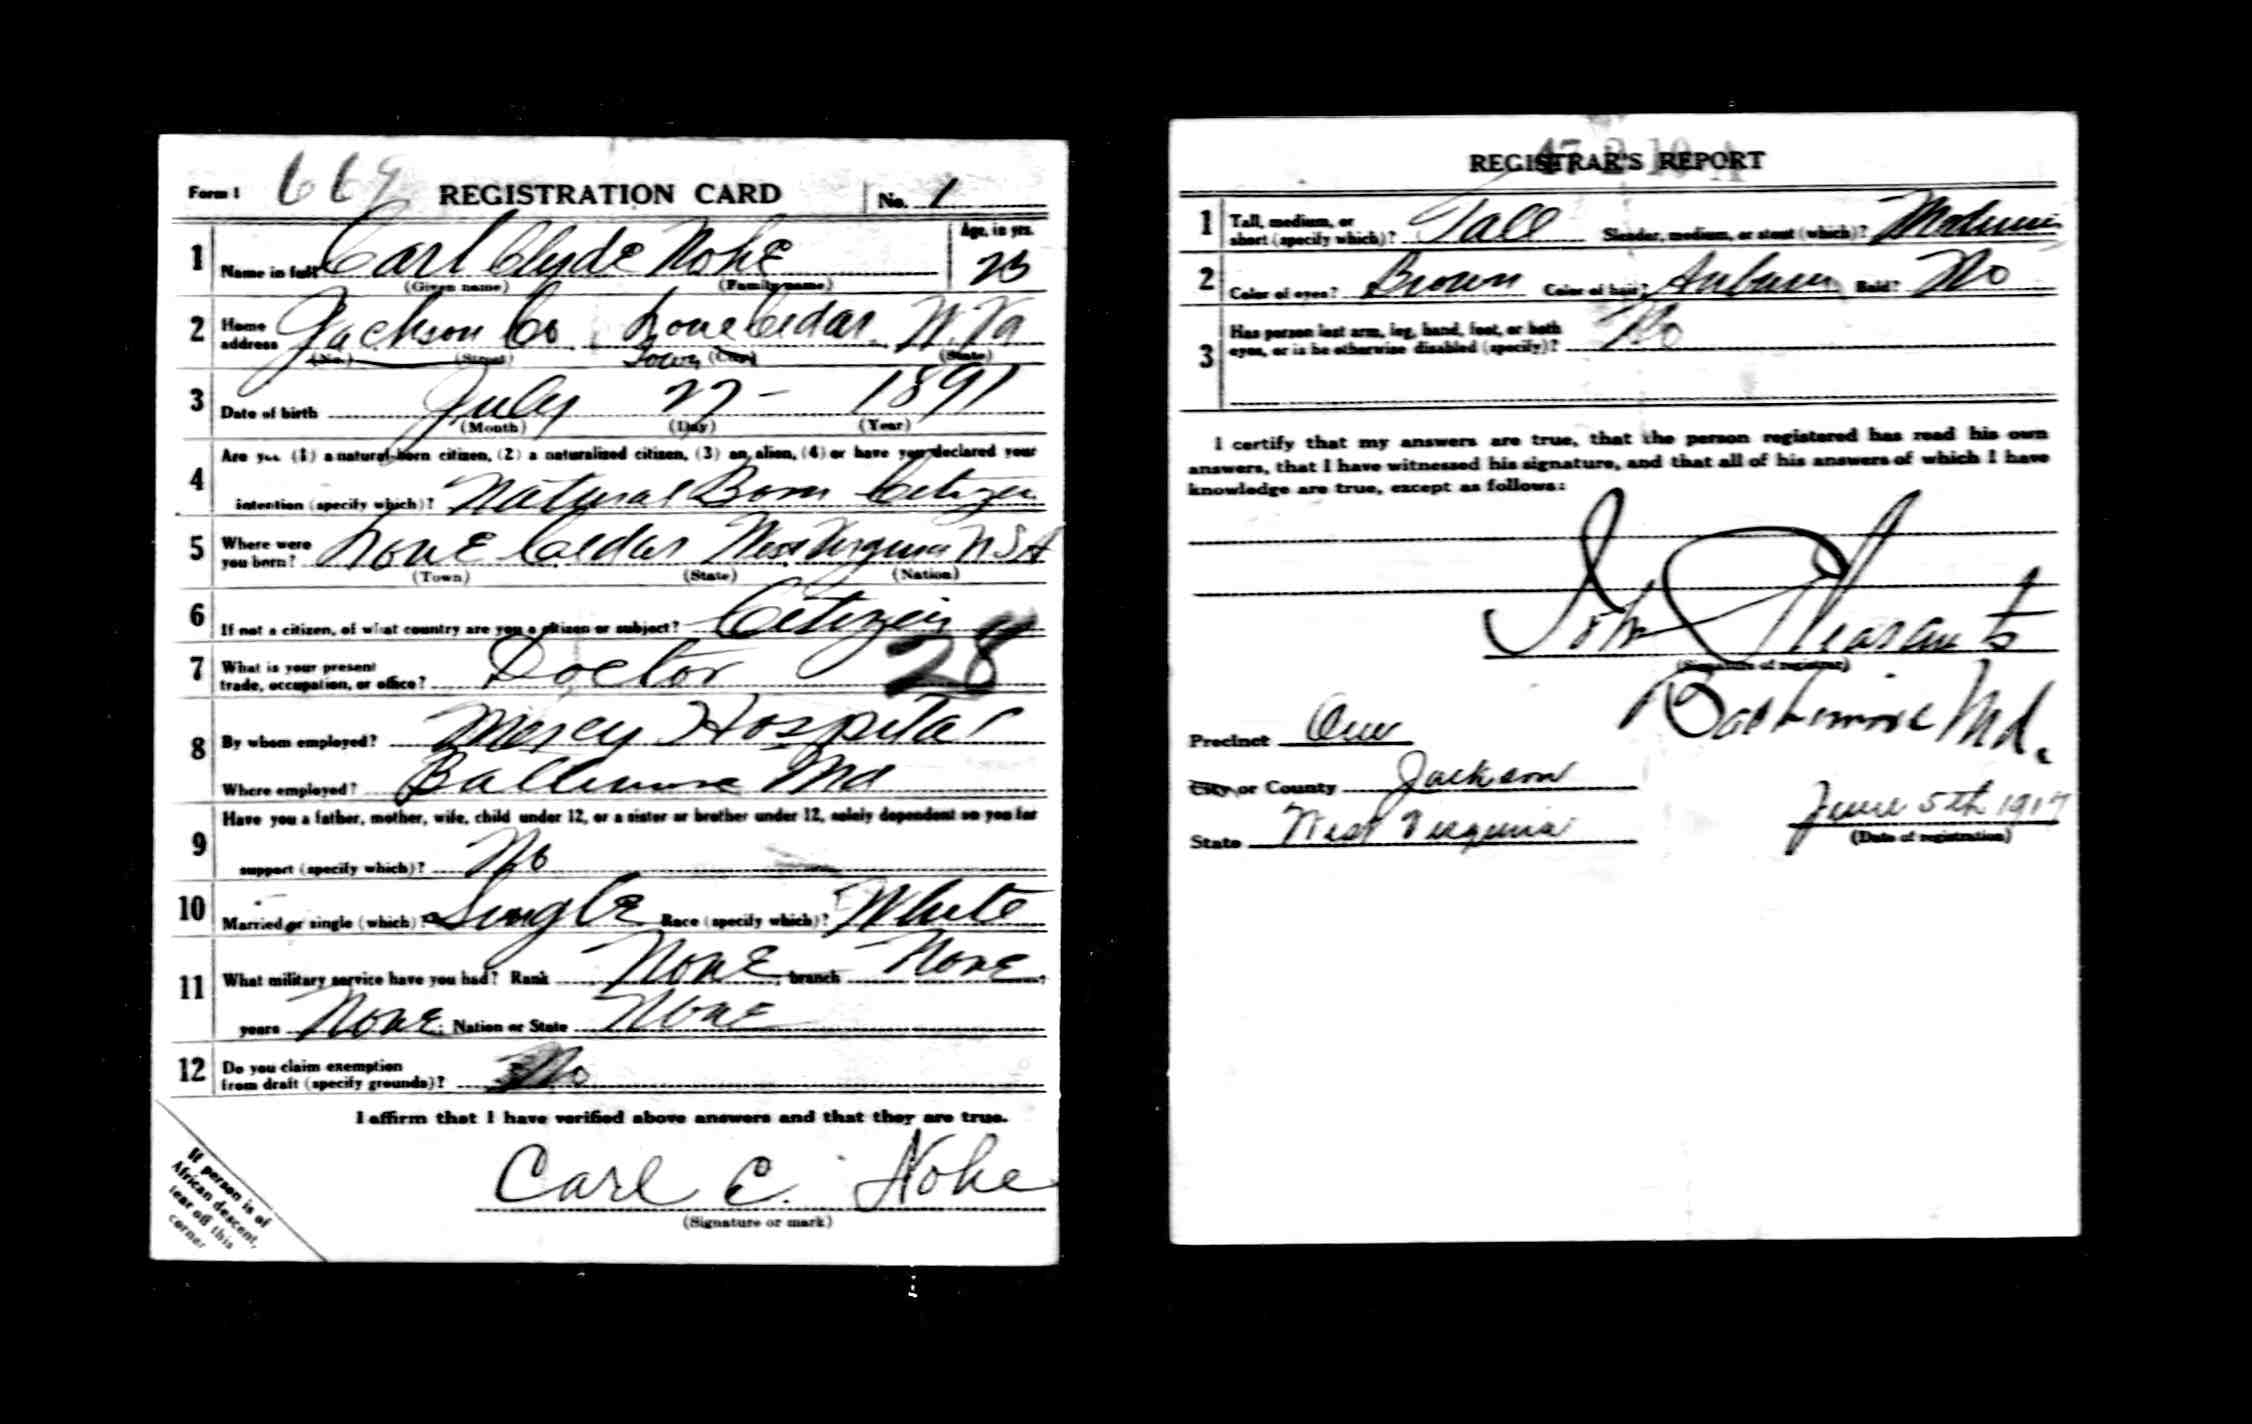 Form 1 669 REGISTRATION CARD No. 1
1 Name in full Carl Clyde Nohe Age, in yrs.
(Given name) (Family name)
2 Home address Jackson Co Lone Cedar W. Va
(No.) (Street) Town (City) (State)
3 Date of birth July 27 - 1891
(Month) (Day) (Year)
4 Are you (1) a natural-born citizen, (2) a naturalized citizen, (3) an alien, (4) or have you declared your
intention (specify which)? Natural Born Citizen
5 Where were you born? Lone Cedar West Virginia USA
(Town) (State) (Nation)
6 If not a citizen, of what country are you a citizen or subject? Citizen
7 What is your present trade, occupation, or office? Doctor 28
8 By whom employed? Mercy Hospital
Where employed? Baltimore Md
9 Have you a father, mother, wife, child under 12, or a sister or brother under 12, solely dependent on you for
support (specify which)? No
10 Married or single (which)? Single Race (specify which)? White
11 What military service have you had? Rank None; branch None
years None; Nation or State None
12 Do you claim exemption
from draft (specify grounds)? No
I affirm that I have verified above answers and that they are true.
Carl C. Nohe
(Signature or mark)
If person is of
African descent,
tear off this
corner
REGISTRAR'S REPORT
1 Tall, medium, or short (specify which)? Tall Slender, medium, or stout (which)? Medium
2 Color of eyes? Brown Color of hair? Auburn Bald? No
3 Has person lost arm, leg, hand, foot, or both
eyes, or is he otherwise disabled (specify)? No
I certify that my answers are true, that the person registered has read his own
answers, that I have witnessed his signature, and that all of his answers of which I have
knowledge are true, except as follows:
John Pleasants
(Signature of registrar)
Baltimore Md.
Precinct One
City or County Jackson
State West Virginia June 5th 1917
(Date of registration)